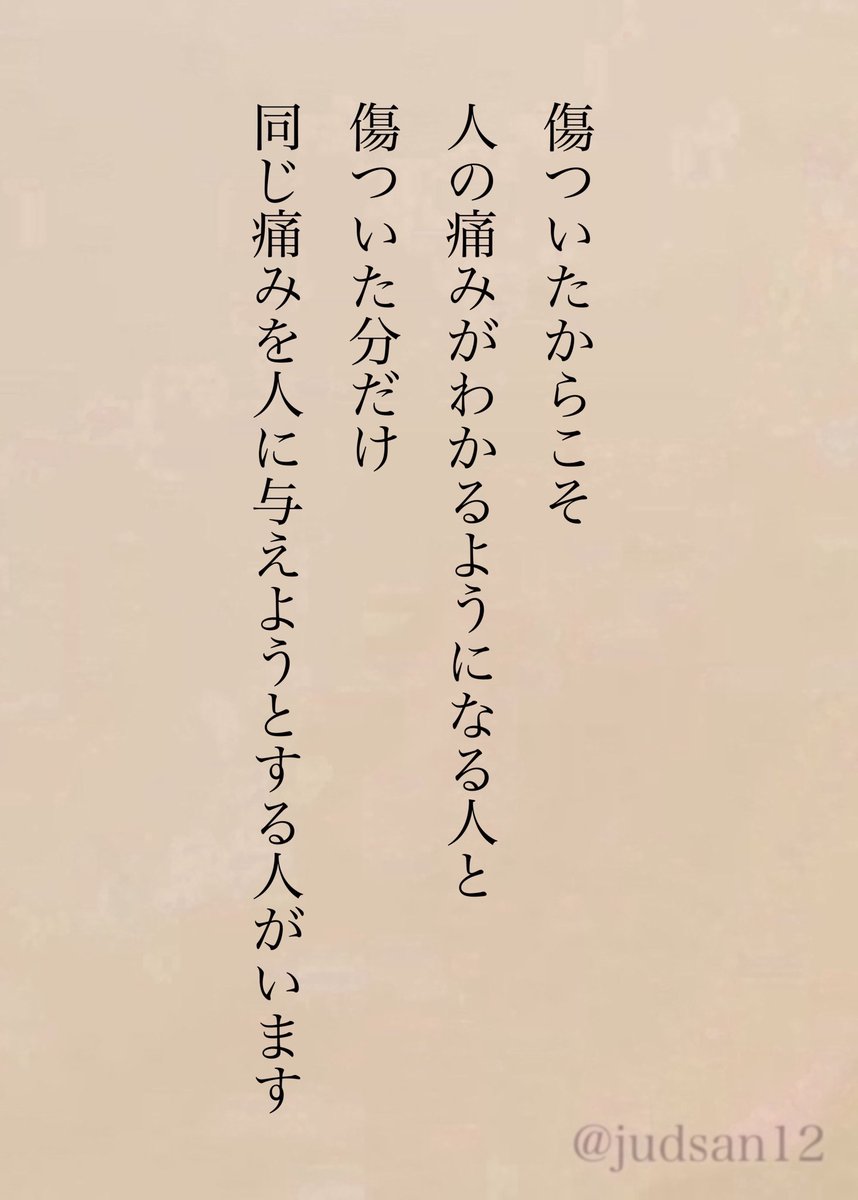 傷ついたからこそ
人の痛みがわかるようになる人と
傷ついた分だけ
同じ痛みを人に与えようとする人がいます
@judsan12